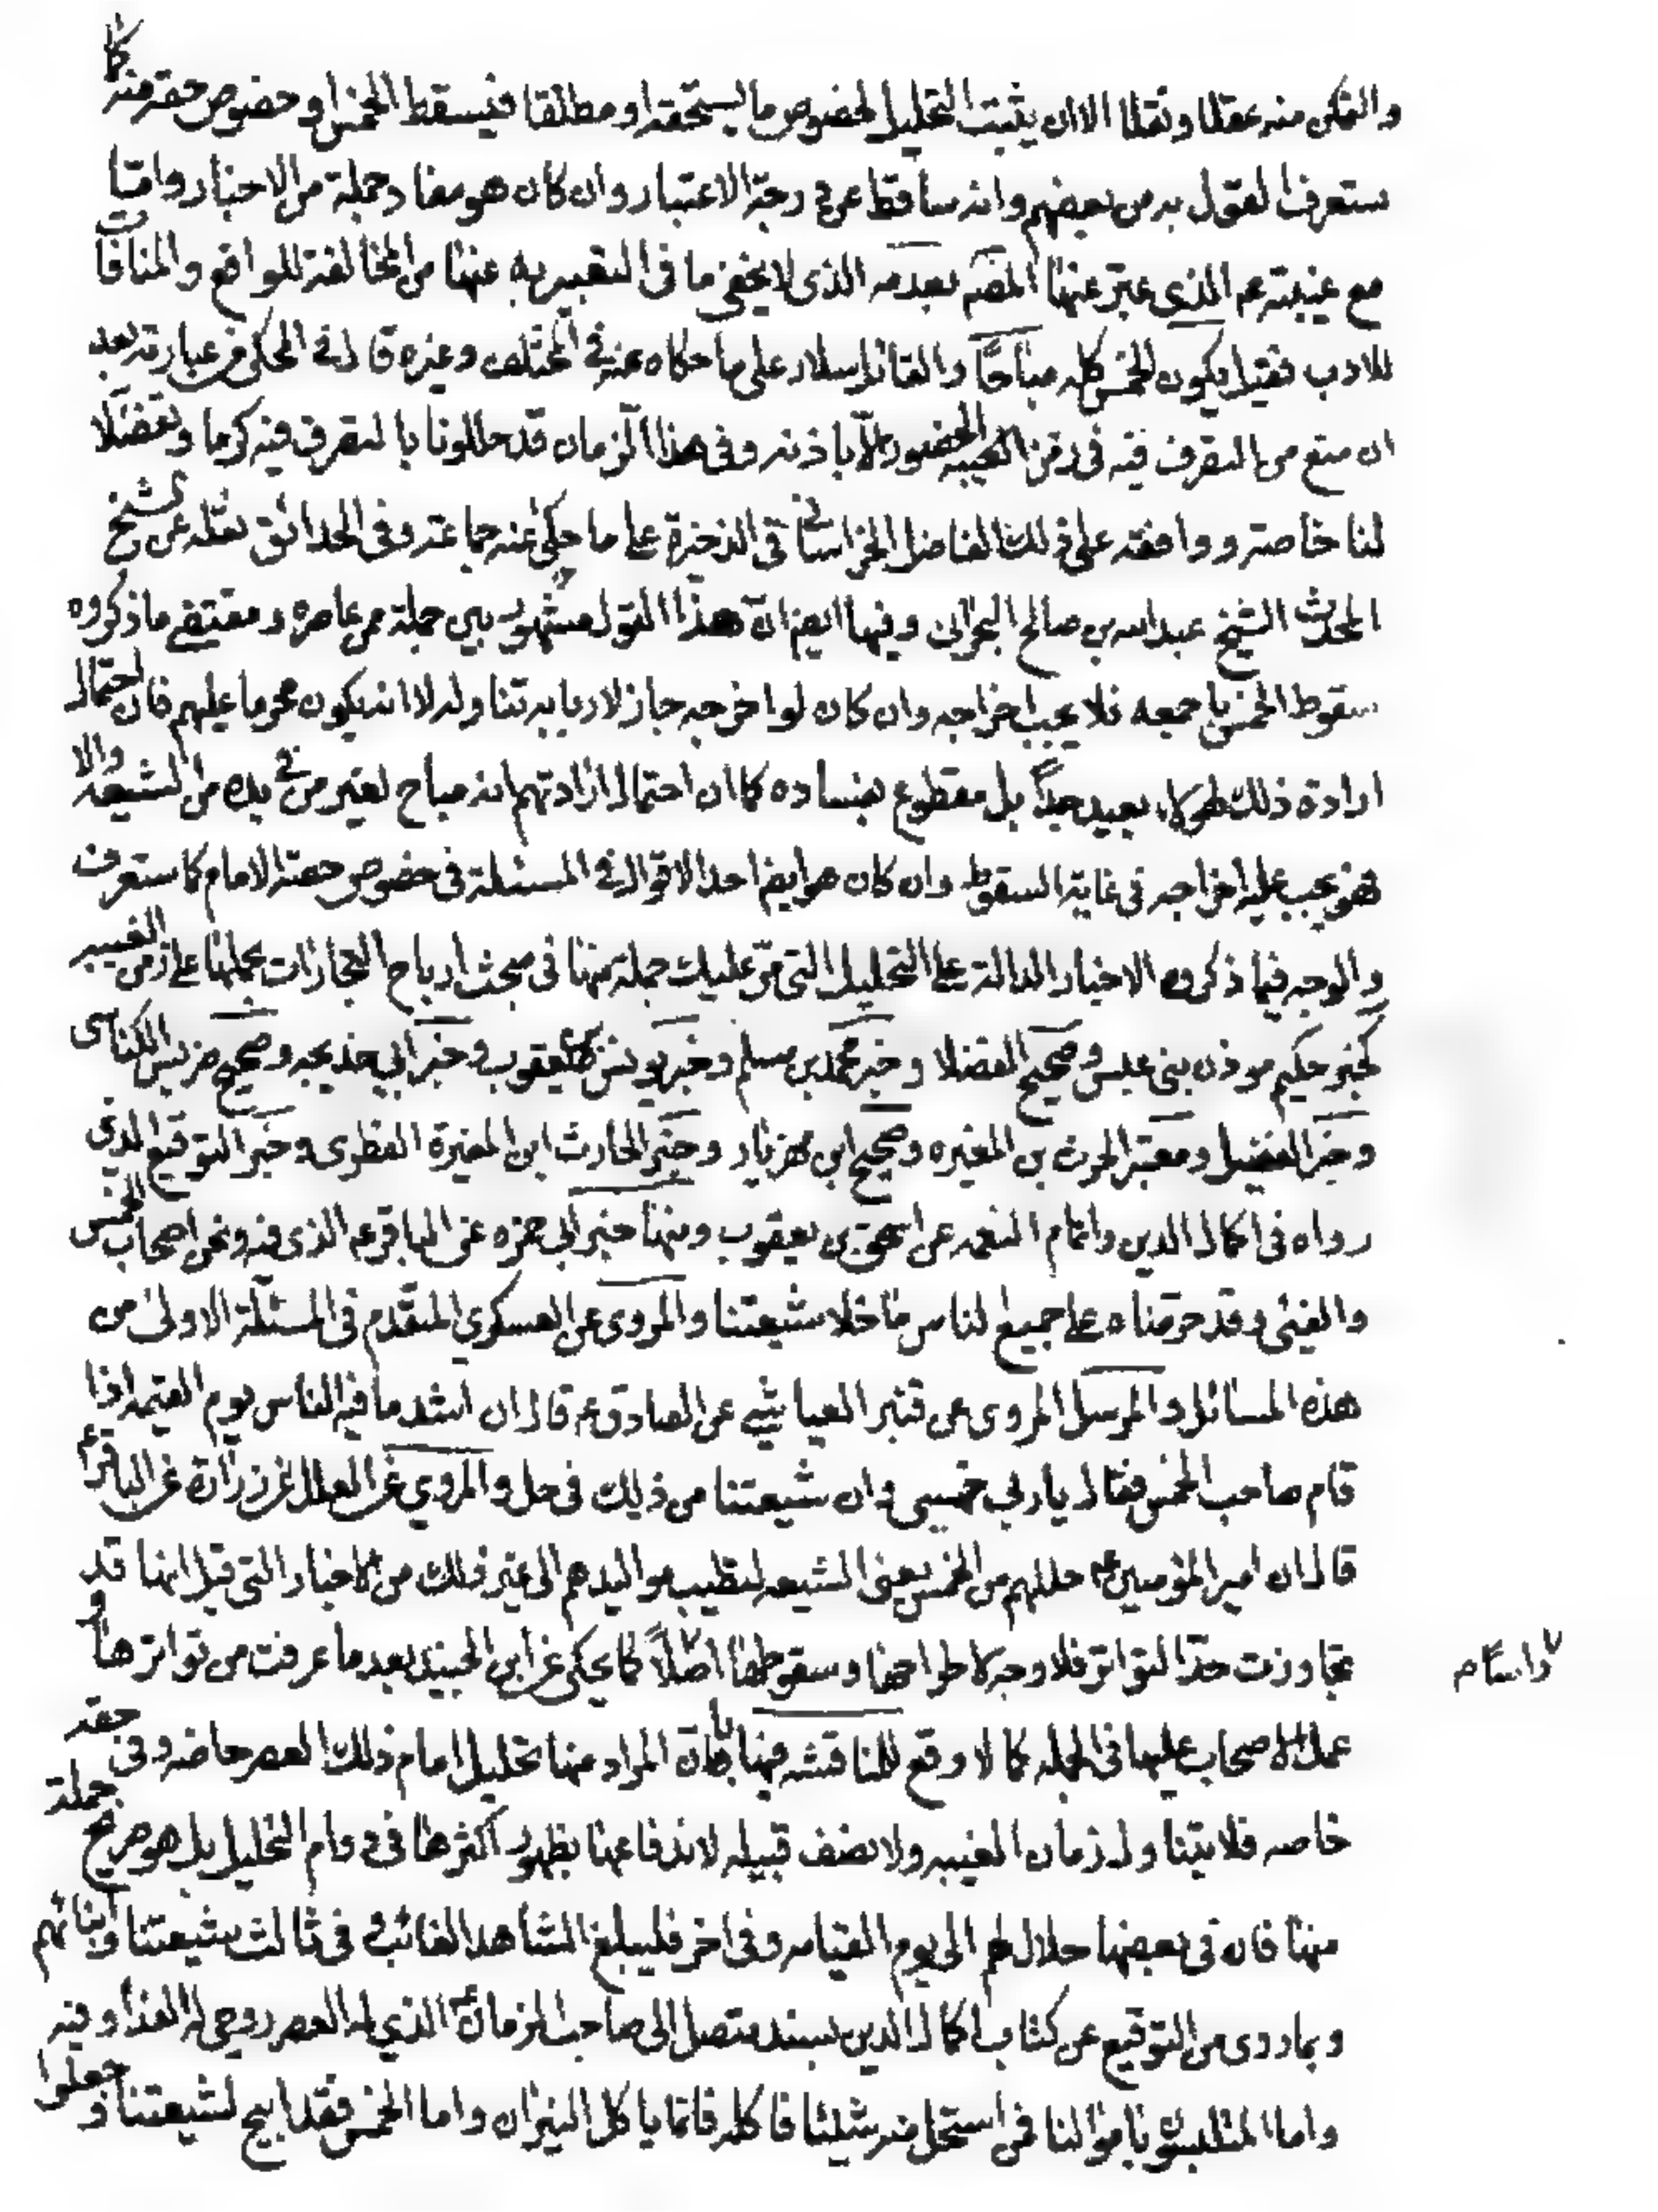 والتمكن منه عقلا ونقلا الا ان يثبت التحليل لخصوص ما يستحقه او مطلقا فيسقط الخمس او خصوص حقه منه كما
ستعرف القول به من بعضهم وانه ساقط عن درجة الاعتبار وان كان هو مفاد جملة من الاخبار واما
مع غيبته عم الذى عبر عنها المصم بعدمه الذى لا يخفى ما فى التعبير به عنها من المخالفة للواقع والمنافات
للادب فقيل يكون الخمس كله مباحا والقائل سلار على ما حكاه عنه فى المختلف وغيره قال فى المحكى من عبارته بعد
ان منع من التصرف فيه فى زمن الحضور الا باذنه وفى هذا الزمان قد حللونا بالتصرف فيه كرما وتفضلا
لنا خاصة ووافقه على ذلك الفاضل الخراسانى فى الذخيرة على ما حكى عنه جماعة وفى الحدائق نقله عن الشيخ
المحدث الشيخ عبد الله بن صالح البحرانى وفيها ايضا ان هذا القول مشهور بين جملة من عاصره ومقتضى ما ذكروه
سقوط الخمس باجمعه فلا يجب اخراجه وان كان لو اخرجه جاز لاربابه تناوله لا انه يكون محرما عليهم فان احتمال
ارادة ذلك لهؤلاء بعيد جدا بل مقطوع بفساده كما ان احتمال ارادتهم انه مباح لغير من فى يده من الشيعة والا
فهو يجب عليه اخراجه فى غاية السقوط وان كان هو ايضا احد الاقوال فى المسئلة فى خصوص حصة الامام كما ستعرف
والوجه فيما ذكروه الاخبار الدالة على التحليل التى مر عليك جملة منها فى مبحث ارباح التجارات بحملها على زمن الغيبه
كخبر حكيم موذن بنى عبس وصحيح الفضلا وخبر محمد بن مسلم وخبر يونس بن يعقوب وخبر ابى خديجه وصحيح ضريس الكناسى
وخبر الفضيل ومعتبر الحرث بن المغيره وصحيح ابن مهزيار وخبر الحارث ابن المغيرة النضرى وخبر التوقيع الذى
رواه فى اكمال الدين واتمام النعمه عن اسحق بن يعقوب ومنها خبر ابى حمزه عن الباقر عم الذى فيه ونحن اصحاب الخمس
والفيئ وقد حرمناه على جميع الناس ما خلا شيعتنا والمروى عن العسكرى المتقدم فى المسئلة الاولى من
هذه المسائل والمرسل المروى عن العياشى عن الصادق عم قال ان اشد ما فيه الناس يوم القيمه اذا
قام صاحب الخمس فقال يا رب خمسى وان شيعتنا من ذلك فى حل والمروى عن العلل عن زرارة عن الباقر ع
قال ان امير المؤمنين ع حللهم من الخمس يعنى الشيعه لتطيب مواليدهم الى غير ذلك من الاخبار التى قيل انها قد
تجاوزت حد التواتر فلا وجه لاطراحها وسقوطها اصلا كما يحكى عن ابن الجنيد بعد ما عرفت من تواترها و
عمل الاصحاب عليها فى الجمله كما لا وقع للمناقشه فيها بان المراد منها تحليل امام ذلك العصر خاصه وفى حقه
خاصه فلا يتناول زمان الغيبه ولا نصف قبيله لاندفاعها بظهور اكثرها فى دوام التحليل بل هو صريح جملة
منها فان فى بعضها حلال لهم الى يوم القيامه وفى اخر فليبلغ الشاهد الغائب وفى ثالث شيعتنا وابنائهم
وبما روى من التوقيع عن كتاب اكمال الدين بسند متصل الى صاحب الزمان الذى له العصر روحى له الفداء وفيه
واما المتلبسون باموالنا فمن استحل منه شيئا فاكله فانما ياكل النيران واما الخمس فقد ابيح لشيعتنا وجعلوا